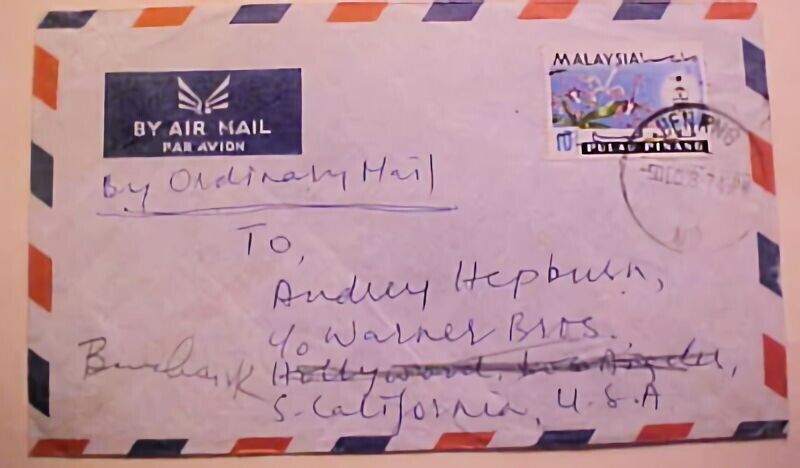 MALAYSIA
BY AIR MAIL
PAR AVION
PULAU PINANG
PENANG
By Ordinary Mail
To,
Audrey Hepburn,
c/o Warner Bros.,
Burbank Hollywood, Los Angeles,
S. California, U.S.A